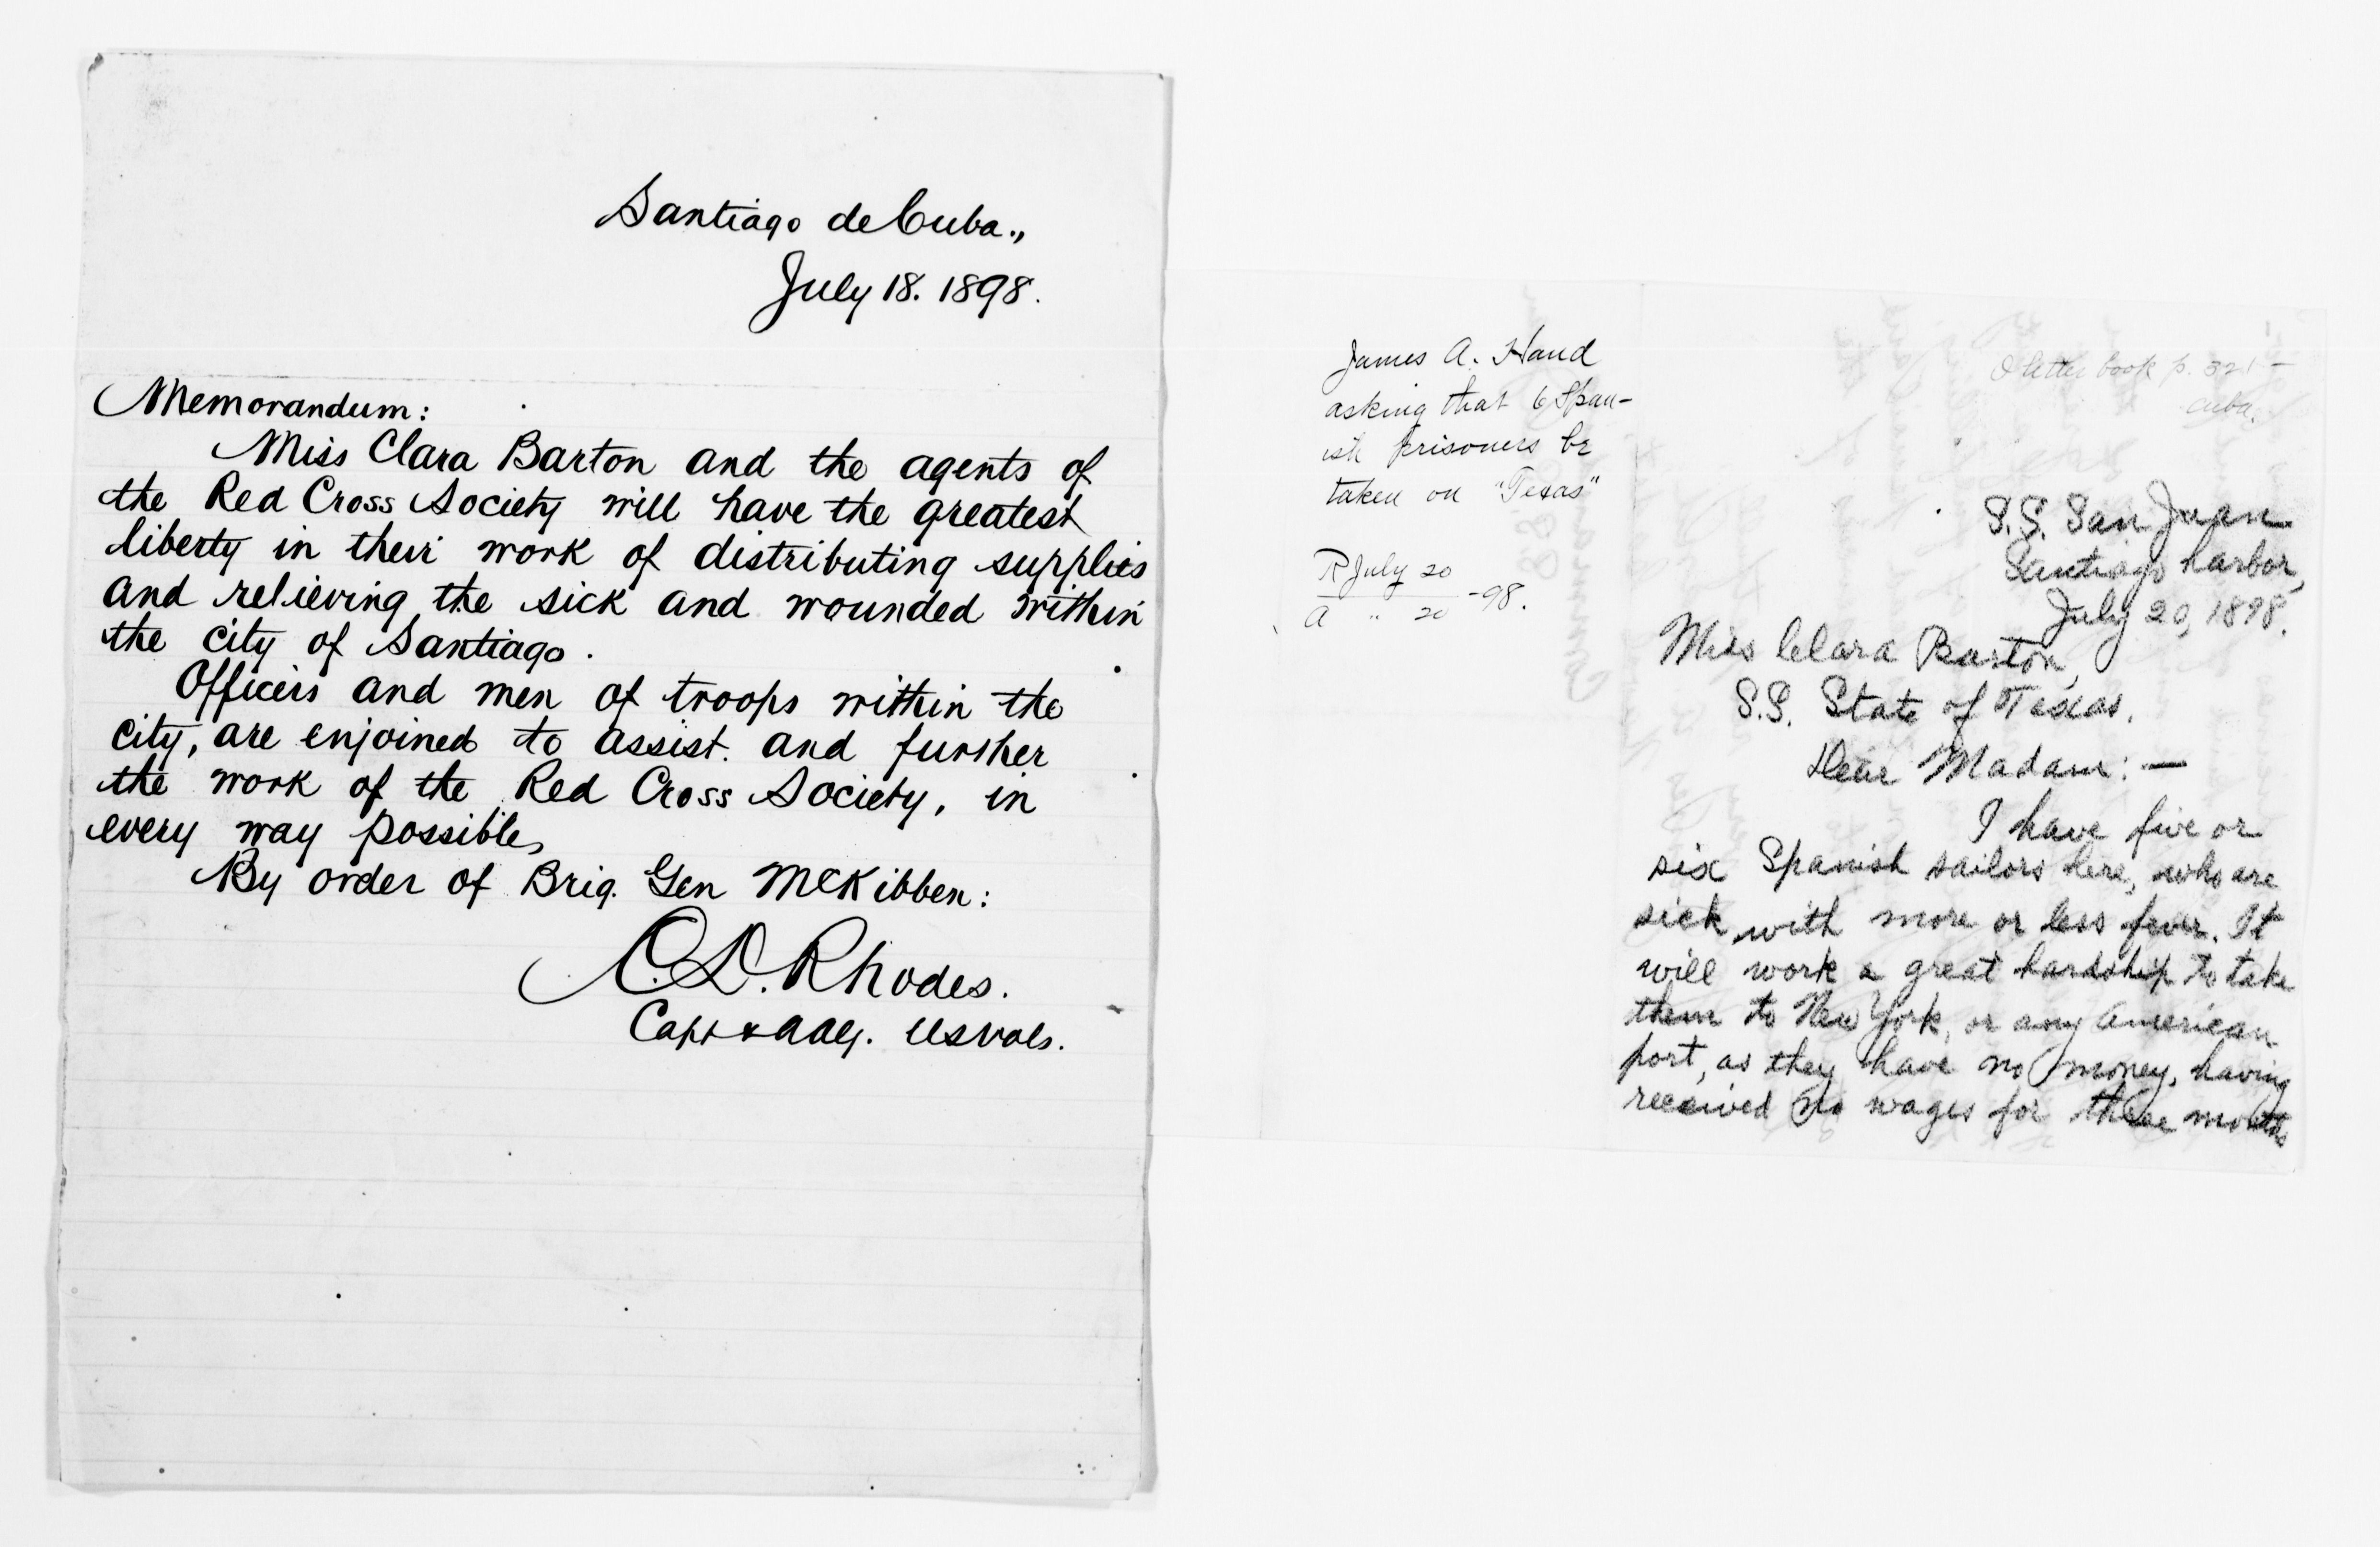 Santiago de Cuba.,
July 18. 1898.
Memorandum:
Miss Clara Barton and the agents of
the Red Cross Society will have the greatest
liberty in their work of distributing supplies
and relieving the sick and wounded within
the city of Santiago.
Officers and men of troops within the
city, are enjoined to assist. and further
the work of the Red Cross Society, in
every way possible,
By order of Brig. Gen McKibben:
C. D. Rhodes.
Capt & AAG. USVols.
James A. Hand
asking that 6 Span-
ish prisoners be
taken on "Texas"
R July 20
A " 20 -98.
letter book p. 321 -
Cuba.
S.S. San Juan
Santiago harbor,
July 20, 1898.
Miss Clara Barton,
S.S. State of Texas.
Dear Madam: —
I have five or
six Spanish sailors here, who are
sick with more or less fever. It
will work a great hardship to take
them to New York, or any American
port, as they have no money, having
received no wages for three months